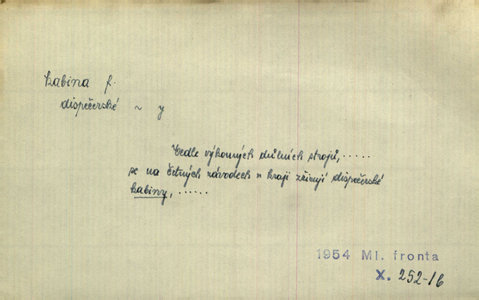 kabina f.
dispečerské ~ y
Vedle výkonných důlních strojů, .....
se na četných závodech v kraji zřizují dispečerské
kabiny, ......
1954 Ml. fronta
X. 252-16